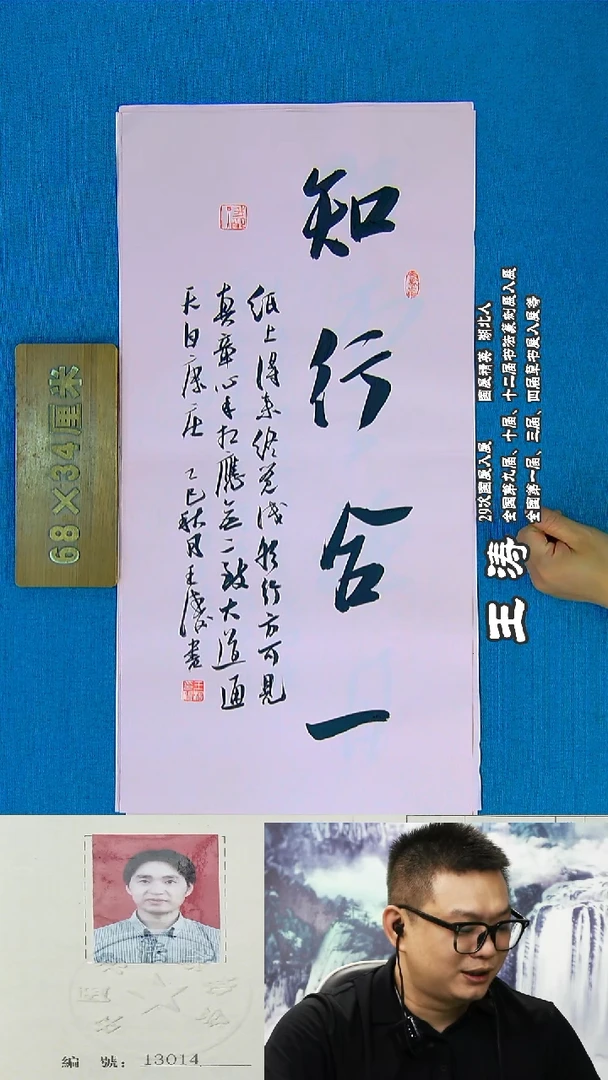 知行合一
纸上得来终觉浅躬行方可見
真章心手相應無二致大道通
天自康庄 乙巳秋月王涛書
68×34厘米
王涛
29次國展入展 國展精英 湖北人
全國第九届、十届、十二届书法篆刻展入展
全國第一届、三届、四届草书展入展等
編 號：13014